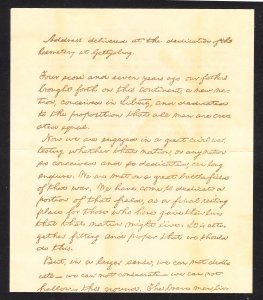 Address delivered at the dedication of the
Cemetery at Gettysburg.
Four score and seven years ago our fathers
brought forth on this continent, a new na-
tion, conceived in Liberty, and dedicated
to the proposition that all men are cre-
ated equal.
Now we are engaged in a great civil war,
testing whether that nation, or any nation
so conceived and so dedicated, can long
endure. We are met on a great battle-field
of that war. We have come to dedicate a
portion of that field, as a final resting
place for those who here gave their lives
that that nation might live. It is alto-
gether fitting and proper that we should
do this.
But, in a larger sense, we can not dedi-
cate — we can not consecrate — we can not
hallow — this ground. The brave men, liv-